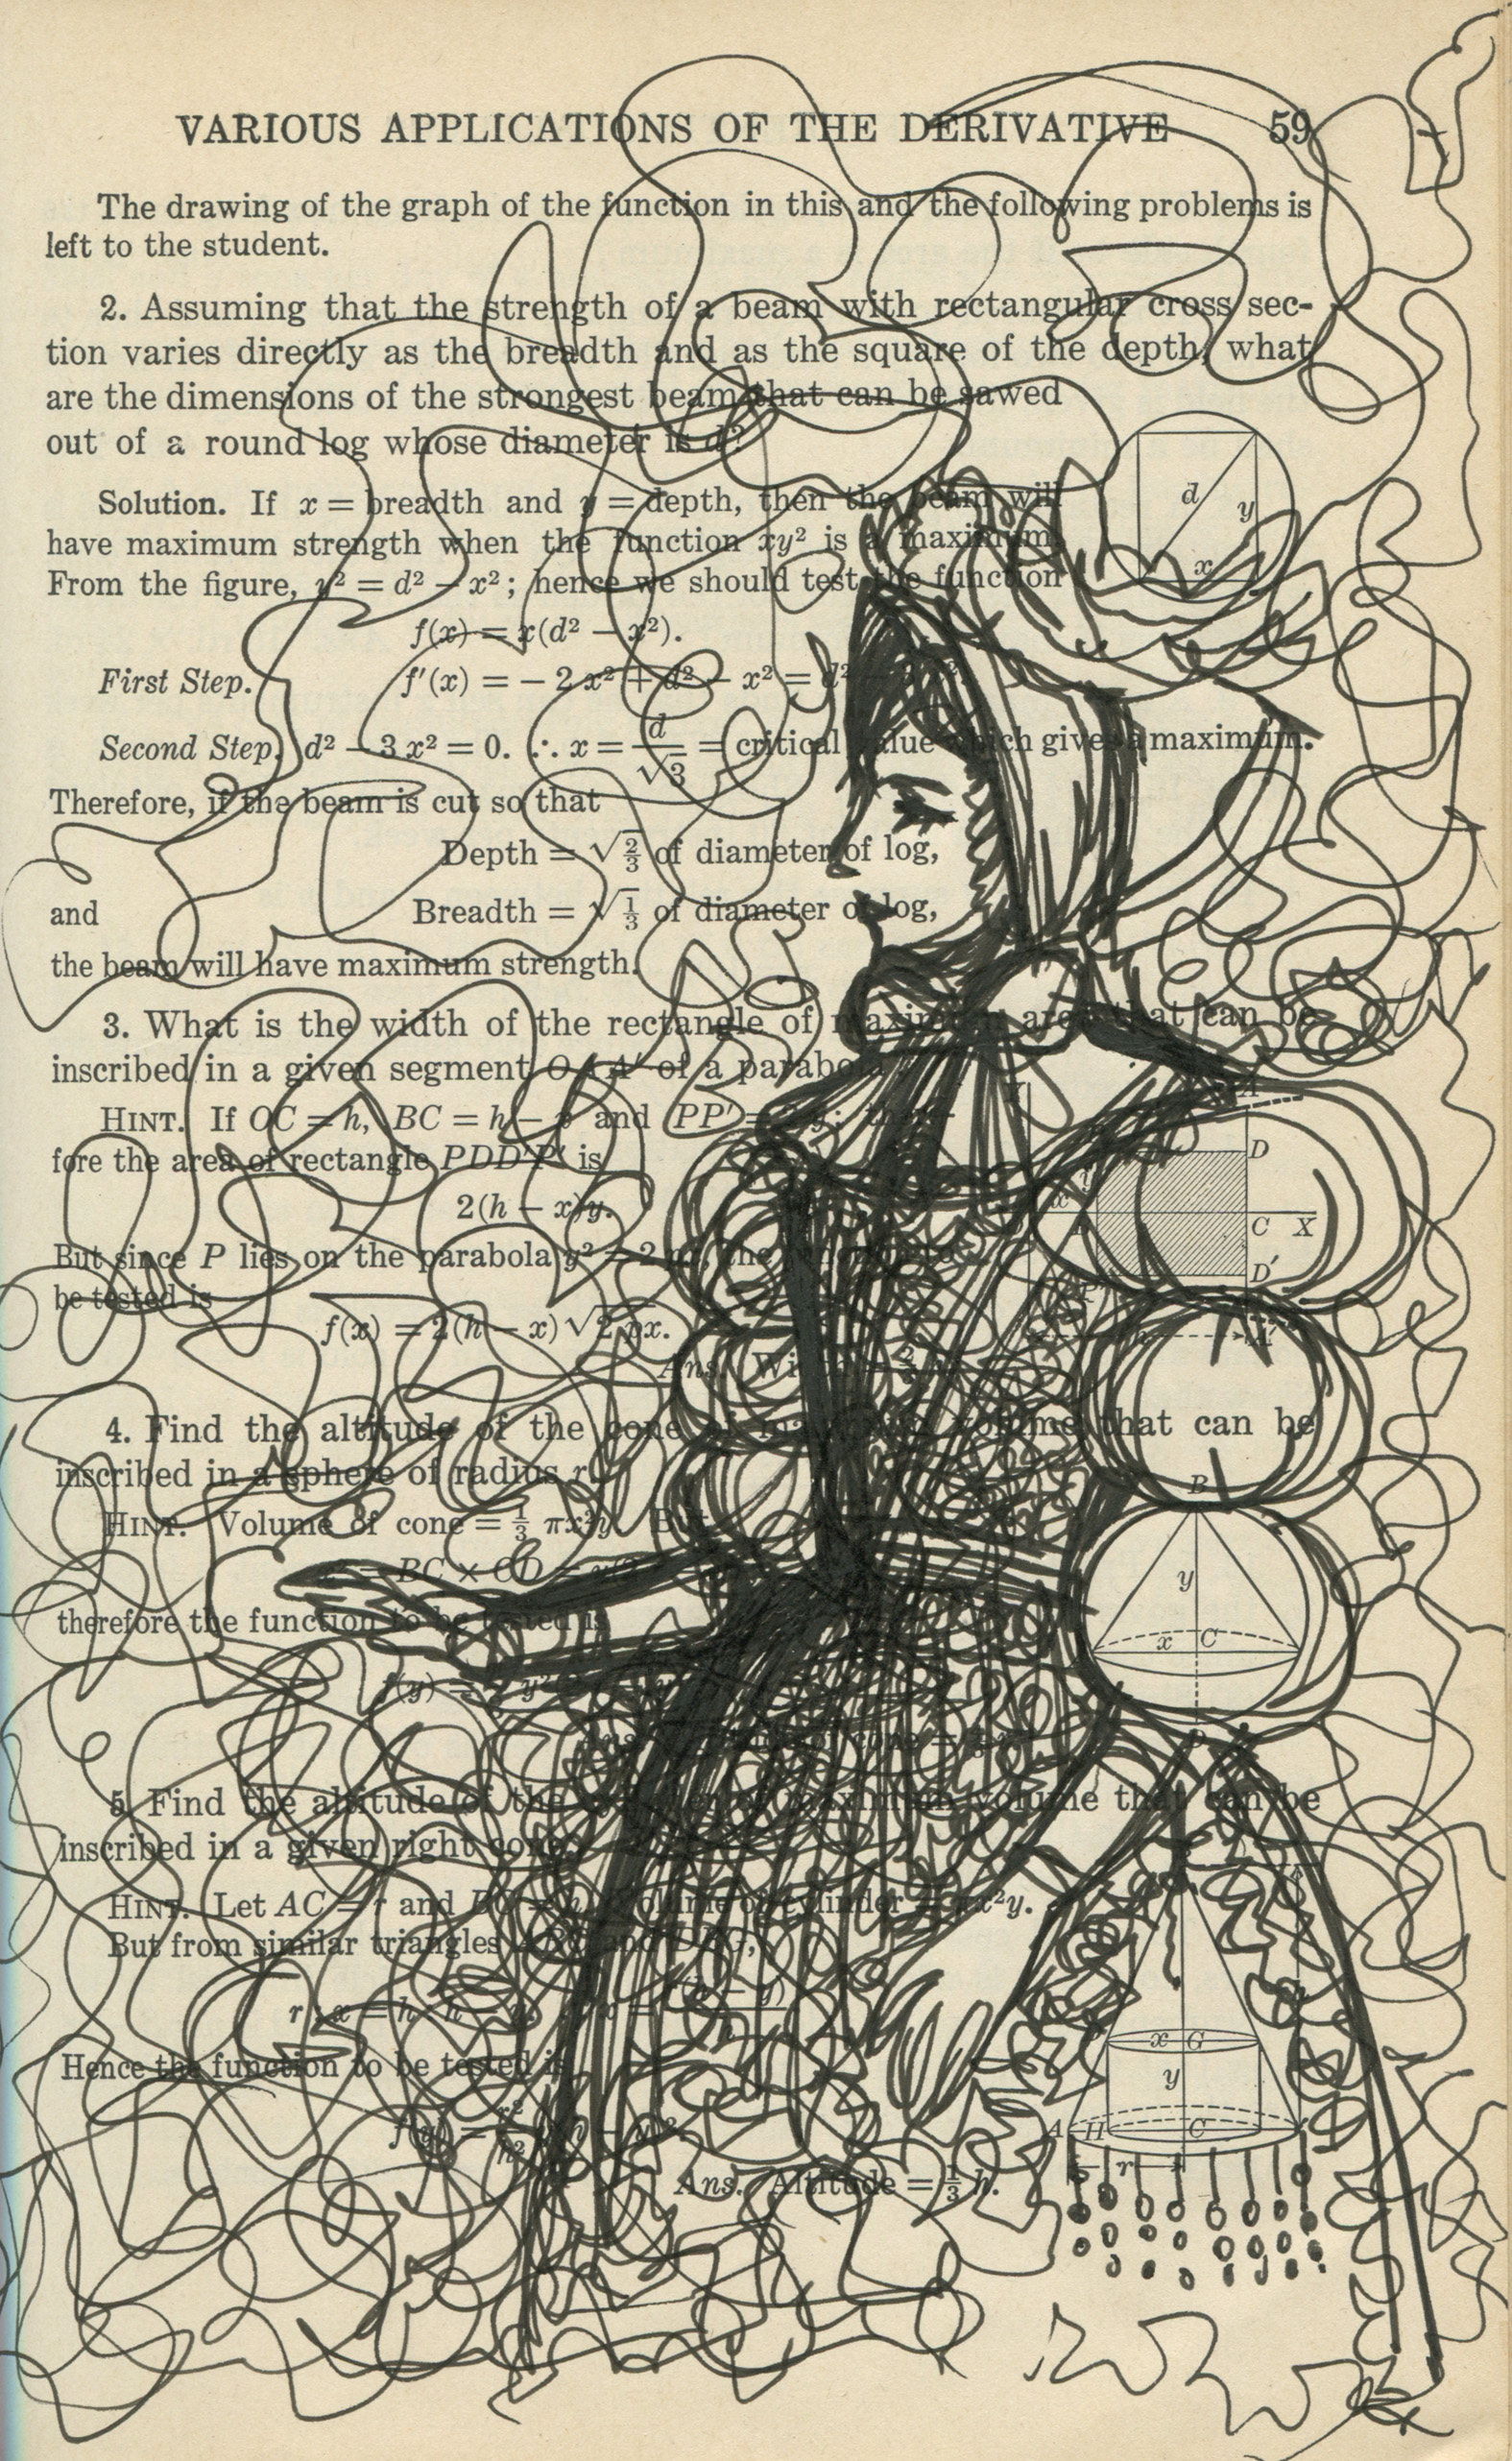 VARIOUS APPLICATIONS OF THE DERIVATIVE 59
The drawing of the graph of the function in this and the following problems is
left to the student.
2. Assuming that the strength of a beam with rectangular cross sec-
tion varies directly as the breadth and as the square of the depth, what
are the dimensions of the strongest beam that can be sawed
out of a round log whose diameter is d?
Solution. If x = breadth and y = depth, then the beam will
have maximum strength when the function xy² is a maximum.
From the figure, y² = d² − x²; hence we should test the function
d
y
x
f(x) = x(d² − x²).
First Step. f′(x) = − 2 x² + d² − x² = d²
Second Step. d² − 3 x² = 0. ∴ x = d/√3 = critical value which gives a maximum.
Therefore, if the beam is cut so that
Depth = √⅔ of diameter of log,
and Breadth = √⅓ of diameter of log,
the beam will have maximum strength.
3. What is the width of the rectangle of maximum area that can be
inscribed in a given segment OAA′ of a parabola
HINT. If OC = h, BC = h − and PP′ =
fore the area of rectangle PDD′P′ is
2(h − x)y.
D
C X
D′
But since P lies on the parabola y² = 2 the
be tested is
f(x) = 2(h − x)√2 px.
Ans.
4. Find the altitude of the cone of volume that can be
inscribed in a sphere of radius r.
HINT. Volume of cone = ⅓ πx²y. But
= BC × CD =
therefore the function to be tested is
f(y) =
of cone =
B
y
x C
5. Find the altitude of the maximum volume that can be
inscribed in a given right cone.
HINT. Let AC = r and volume of cylinder = πx²y.
But from similar triangles
r : x = h
Hence the function to be tested is
Ans. Altitude = ⅓ h.
x G
y
A H C
r